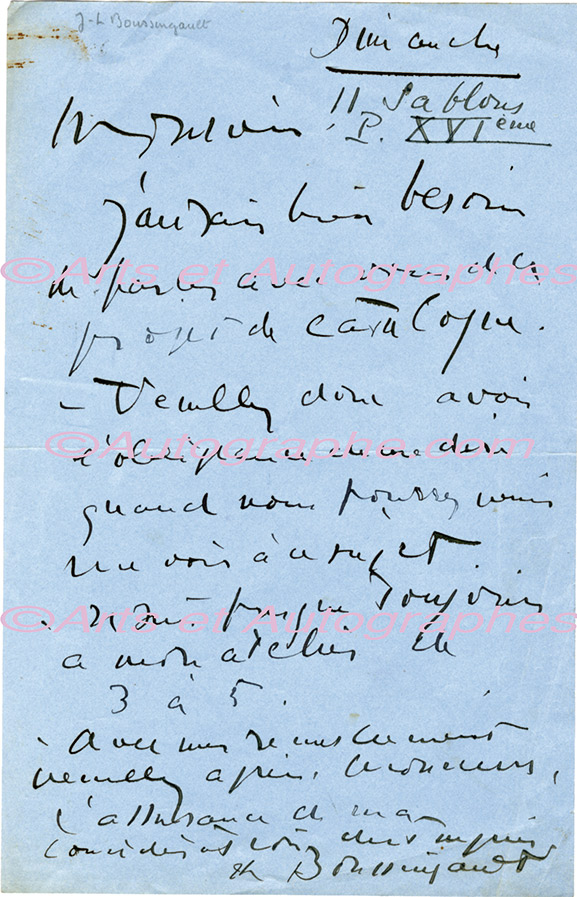 J-L Boussingault
Dimanche
11 Sablons
P. XVIème
Monsieur
J'aurais bien besoin
de parler avec vous de
projet de catalogue.
- Veuillez donc avoir
l'obligeance de me dire
quand vous pourrez venir
me voir à ce sujet.
presque toujours
a mon atelier de
3 à 5.
- Avec mes remerciements
veuillez agréer, Monsieur,
l'assurance de ma
considération
Boussingault
©Arts et Autographes
©Autographe.com
©Arts et Autographes